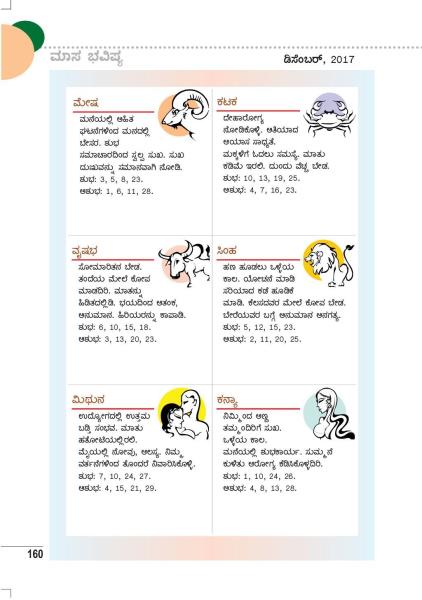 ಮಾಸ ಭವಿಷ್ಯ
ಡಿಸೆಂಬರ್, 2017
ಮೇಷ
ಮನೆಯಲ್ಲಿ ಅಹಿತ
ಘಟನೆಗಳಿಂದ ಮನದಲ್ಲಿ
ಬೇಸರ. ಶುಭ
ಸಮಾಚಾರದಿಂದ ಸ್ವಲ್ಪ ಸುಖ. ಸುಖ
ದುಃಖವನ್ನು ಸಮಾನವಾಗಿ ನೋಡಿ.
ಶುಭ: 3, 5, 8, 23.
ಅಶುಭ: 1, 6, 11, 28.
ಕಟಕ
ದೇಹಾರೋಗ್ಯ
ನೋಡಿಕೊಳ್ಳಿ. ಅತಿಯಾದ
ಆಯಾಸ ಸಾಧ್ಯತೆ.
ಮಕ್ಕಳಿಗೆ ಓದಲು ಸಮಸ್ಯೆ. ಮಾತು
ಕಡಿಮೆ ಇರಲಿ. ದುಂದು ವೆಚ್ಚ ಬೇಡ.
ಶುಭ: 10, 13, 19, 25.
ಅಶುಭ: 4, 7, 16, 23.
ವೃಷಭ
ಸೋಮಾರಿತನ ಬೇಡ.
ತಂದೆಯ ಮೇಲೆ ಕೋಪ
ಮಾಡದಿರಿ. ಮಾತನ್ನು
ಹಿಡಿತದಲ್ಲಿಡಿ, ಭಯದಿಂದ ಆತಂಕ,
ಅನುಮಾನ. ಹಿರಿಯರನ್ನು ಕಾಪಾಡಿ.
ಶುಭ: 6, 10, 15, 18.
ಅಶುಭ: 3, 13, 20, 23.
ಸಿಂಹ
ಹಣ ಹೂಡಲು ಒಳ್ಳೆಯ
ಕಾಲ. ಯೋಚನೆ ಮಾಡಿ
ಸರಿಯಾದ ಕಡೆ ಹೂಡಿಕೆ
ಮಾಡಿ. ಕೆಲಸದವರ ಮೇಲೆ ಕೋಪ ಬೇಡ.
ಬೇರೆಯವರ ಬಗ್ಗೆ ಅನುಮಾನ ಅನಗತ್ಯ.
ಶುಭ: 5, 12, 15, 23.
ಅಶುಭ: 2, 11, 20, 25.
ಮಿಥುನ
ಉದ್ಯೋಗದಲ್ಲಿ ಉತ್ತಮ
ಬಡ್ತಿ ಸಂಭವ. ಮಾತು
ಹತೋಟಿಯಲ್ಲಿರಲಿ.
ಮೈಯಲ್ಲಿ ನೋವು, ಆಲಸ್ಯ. ನಿಮ್ಮ
ವರ್ತನೆಗಳಿಂದ ತೊಂದರೆ ನಿವಾರಿಸಿಕೊಳ್ಳಿ.
ಶುಭ: 7, 10, 24, 27.
ಅಶುಭ: 4, 15, 21, 29.
ಕನ್ಯಾ
ನಿಮ್ಮಿಂದ ಅಣ್ಣ
ತಮ್ಮಂದಿರಿಗೆ ಸುಖ.
ಒಳ್ಳೆಯ ಕಾಲ.
ಮನೆಯಲ್ಲಿ ಶುಭಕಾರ್ಯ. ಸುಮ್ಮನೆ
ಕುಳಿತು ಆರೋಗ್ಯ ಕೆಡಿಸಿಕೊಳ್ಳದಿರಿ.
ಶುಭ: 1, 10, 24, 26.
ಅಶುಭ: 4, 8, 13, 28.
160